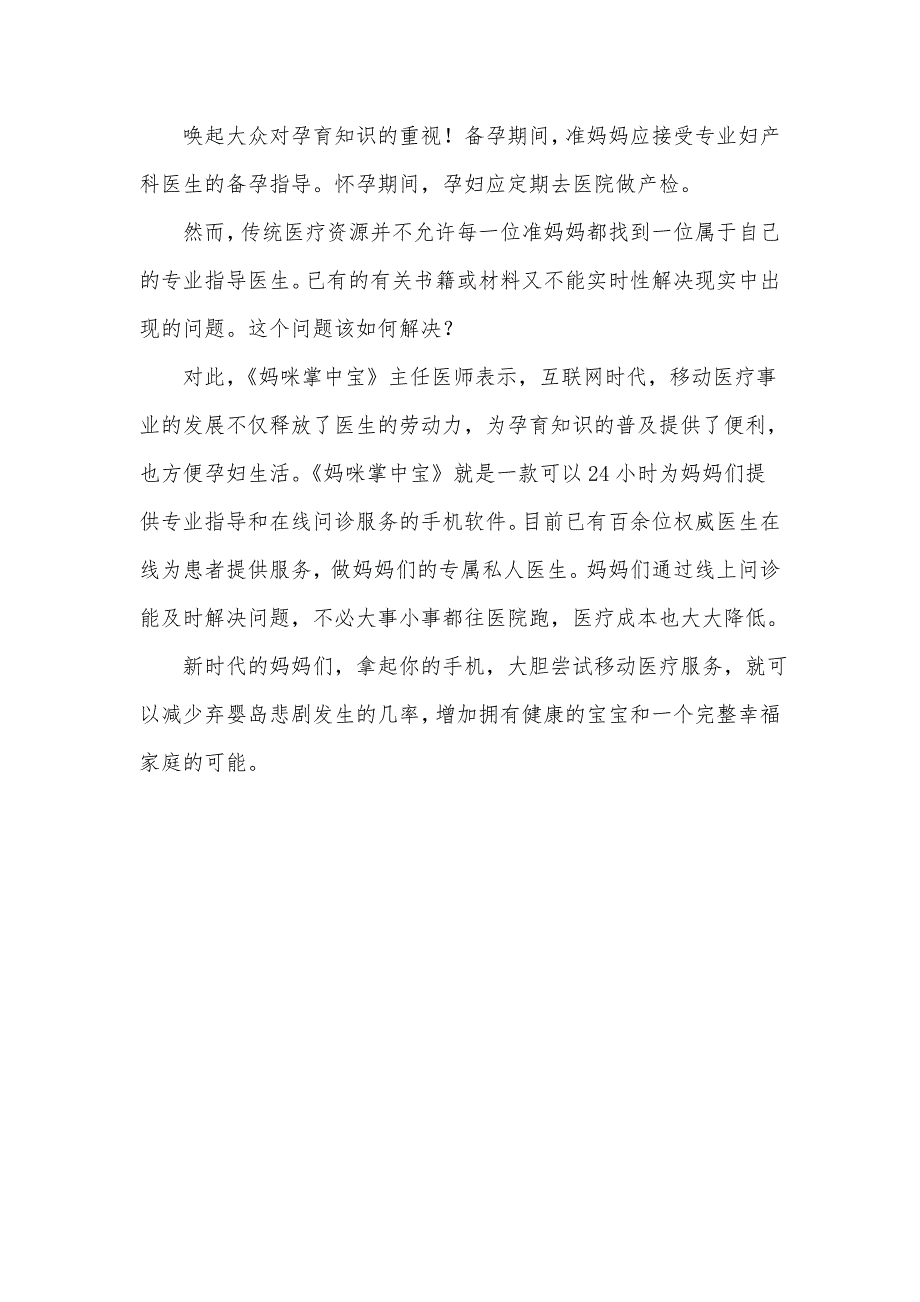 唤起大众对孕育知识的重视！备孕期间，准妈妈应接受专业妇产
科医生的备孕指导。怀孕期间，孕妇应定期去医院做产检。
然而，传统医疗资源并不允许每一位准妈妈都找到一位属于自己
的专业指导医生。已有的有关书籍或材料又不能实时性解决现实中出
现的问题。这个问题该如何解决？
对此，《妈咪掌中宝》主任医师表示，互联网时代，移动医疗事
业的发展不仅释放了医生的劳动力，为孕育知识的普及提供了便利，
也方便孕妇生活。《妈咪掌中宝》就是一款可以 24 小时为妈妈们提
供专业指导和在线问诊服务的手机软件。目前已有百余位权威医生在
线为患者提供服务，做妈妈们的专属私人医生。妈妈们通过线上问诊
能及时解决问题，不必大事小事都往医院跑，医疗成本也大大降低。
新时代的妈妈们，拿起你的手机，大胆尝试移动医疗服务，就可
以减少弃婴岛悲剧发生的几率，增加拥有健康的宝宝和一个完整幸福
家庭的可能。